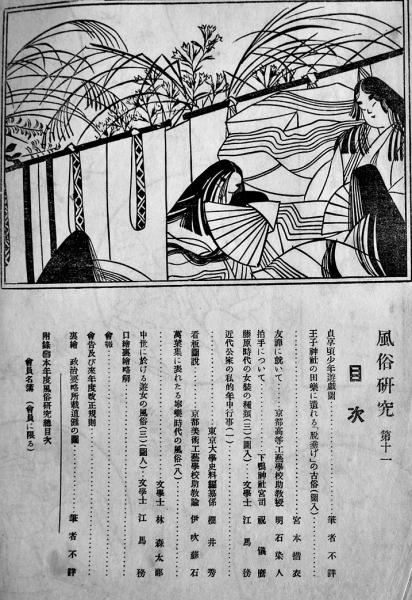 風俗研究 第十一
目次
貞享頃少年遊戲圖………………筆者不詳
王子神社の田樂に遺れる「脫垂げ」の古俗(圖入)………宮本惜衣
友禪に就いて………京都高等工藝學校助教授 明石染人
拍手について………下鴨神社宮司 祝儀麿
藤原時代の女裝の種類(三)(圖入)………文學士 江馬務
近代公家の私的年中行事(一)………東京大學史料編纂係 櫻井秀
看板圖說………京都美術工藝學校助教諭 伊吹藤石
萬葉集に表れたる寧樂時代の風俗(八)………文學士 林森太郎
中世に於ける遊女の風俗(三)(圖入)………文學士 江馬務
口繪裏繪略解
會報
會告及び來年度敬正規則
裏繪 政治要略所載追儺の圖………筆者不詳
附錄 本年度風俗研究總目次
會員名簿(會員に限る)